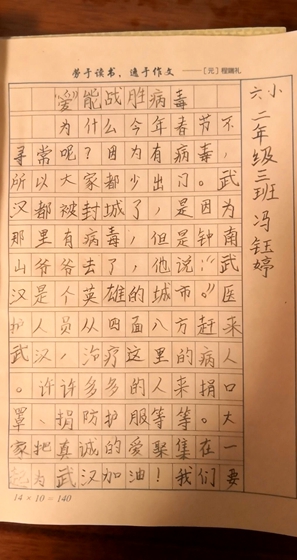 劳于读书，逸于作文 ——［元］程端礼
“爱”能战胜病毒
为什么今年春节不
寻常呢？因为有病毒，
所以大家都少出门。武
汉都被封城了，是因为
那里有病毒，但是钟南
山爷爷去了，他说：“武
汉是个英雄的城市。”医
护人员从四面八方赶来
武汉，治疗这里的病人
。许许多多的人来捐口
罩、捐防护服等等。大
家把真诚的爱聚集在一
起为武汉加油！我们要
14 × 10 = 140
六小
二年级三班 冯钰婷